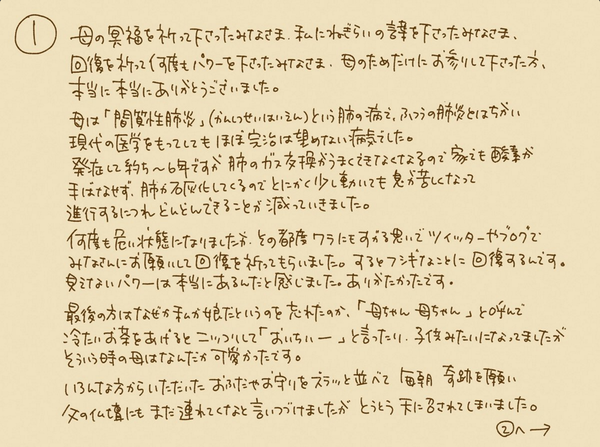 ①
母の冥福を祈って下さったみなさま、私にねぎらいの言葉を下さったみなさま、
回復を祈って何度もパワーを下さったみなさま、母のためだけにお参りして下さった方、
本当に本当にありがとうございました。
母は「間質性肺炎」(かんしつせいはいえん)という肺の病で、ふつうの肺炎とはちがい
現代の医学をもってしてもほぼ完治は望めない病気でした。
発症して約5〜6年ですが 肺のガス交換がうまくできなくなるので 家でも酸素が
手ばなせず、肺が石灰化してくるのでとにかく少し動いても 息が苦しくなって
進行するにつれ どんどんできることが 減っていきました。
何度も危い状態になりましたが、その都度 ワラにもすがる思いで ツイッターやブログで
みなさんにお願いして 回復を祈ってもらいました。するとフシギなことに 回復するんです。
見えないパワーは本当にあるんだと感じました。ありがたかったです。
最後の方はなぜか私が娘だというのを 忘れたのか、「母ちゃん 母ちゃん」と呼んで
冷たいお茶をあげると ニッコリして「おいちぃー」と言ったり、子供みたいになってましたが
そういう時の母はなんだか可愛かったです。
いろんな方からいただいた おふだやお守りをズラッと並べて 毎朝 奇跡を願い
父の仏壇にも まだ連れてくなと言いつづけましたが とうとう 天に召されてしまいました。
②へ→